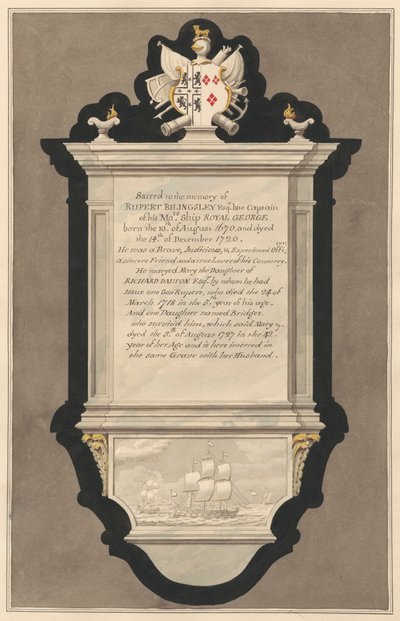 Sacred to the memory of
RUPERT BILINGSLEY Esqr. late Captain
of his Mats. Ship ROYAL GEORGE
born the 10th. of August 1670. and dyed
the 14th. of December 1720.
He was a Brave, Judicious, & Experienced Officer.
a sincere Friend and a true Lover of his Country.
He maryed Mary the Daughter of
RICHARD DALTON Esqr. by whom he had
Issue one Son Rupert, who died the 24 of
March 1718 in the 5th. year of his age.
And one Daugher named Bridget.
who surviv'd him, which said Mary
dyed the 5th. of August 1727 in the 42
year of her Age and is here interred in
the same Grave with her Husband.